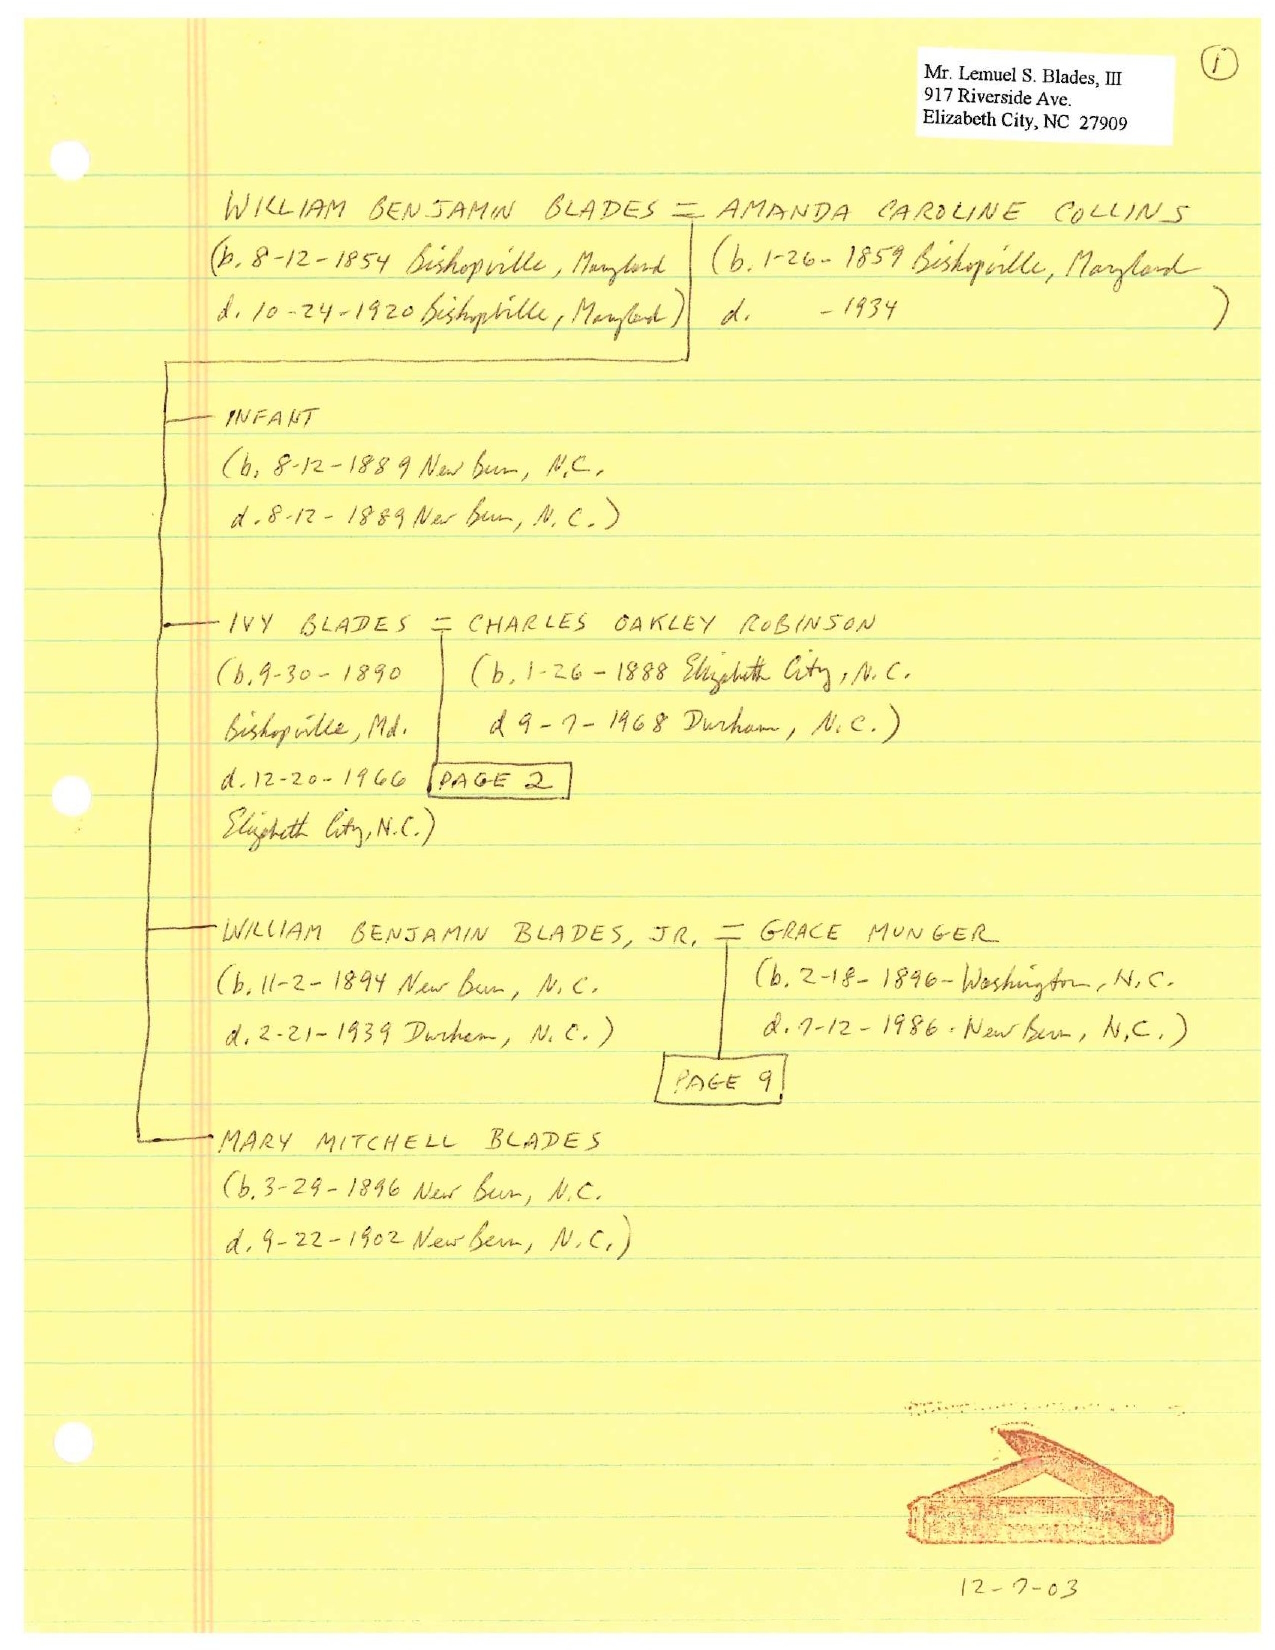 1
Mr. Lemuel S. Blades, III
917 Riverside Ave.
Elizabeth City, NC 27909
WILLIAM BENJAMIN BLADES = AMANDA CAROLINE COLLINS
(b. 8-12-1854 Bishopville, Maryland (b. 1-26-1859 Bishopville, Maryland
d. 10-24-1920 Bishopville, Maryland) d. -1934 )
INFANT
(b. 8-12-1889 New Bern, N.C.
d. 8-12-1889 New Bern, N.C.)
IVY BLADES = CHARLES OAKLEY ROBINSON
(b. 9-30-1890 (b. 1-26-1888 Elizabeth City, N.C.
Bishopville, Md. d 9-7-1968 Durham, N.C.)
d. 12-20-1966 PAGE 2
Elizabeth City, N.C.)
WILLIAM BENJAMIN BLADES, JR. = GRACE MUNGER
(b. 11-2-1894 New Bern, N.C. (b. 2-18-1896-Washington, N.C.
d. 2-21-1939 Durham, N.C.) d. 7-12-1986. New Bern, N.C.)
PAGE 9
MARY MITCHELL BLADES
(b. 3-29-1896 New Bern, N.C.
d. 9-22-1902 New Bern, N.C.)
12-7-03